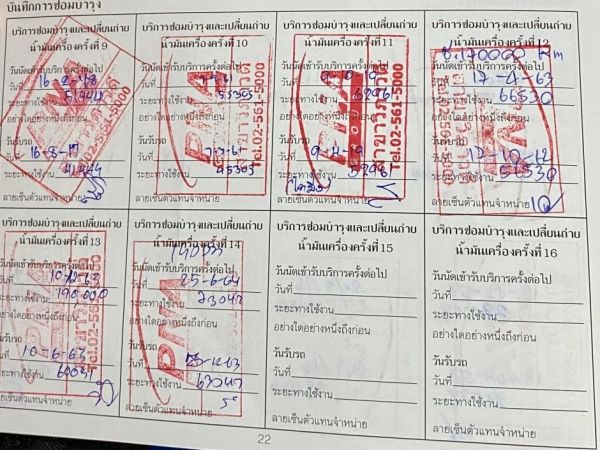 บันทึกการซ่อมบำรุง
บริการซ่อมบำรุงและเปลี่ยนถ่าย
น้ำมันเครื่องครั้งที่ 9
วันนัดเข้ารับบริการครั้งต่อไป
วันที่
ระยะทางใช้งาน
อย่างใดอย่างหนึ่งถึงก่อน
วันรับรถ
วันที่ 16-8-
ระยะทางใช้งาน
ลายเซ็นตัวแทนจำหน่าย
Tel.02-561-5000
บริการซ่อมบำรุงและเปลี่ยนถ่าย
น้ำมันเครื่องครั้งที่ 10
วันนัดเข้ารับบริการครั้งต่อไป
วันที่
ระยะทางใช้งาน 55305
อย่างใดอย่างหนึ่งถึงก่อน
วันรับรถ
วันที่
ระยะทางใช้งาน 45305
ลายเซ็นตัวแทนจำหน่าย
PNA
Tel.02-561-5000
บริการซ่อมบำรุงและเปลี่ยนถ่าย
น้ำมันเครื่องครั้งที่ 11
วันนัดเข้ารับบริการครั้งต่อไป
วันที่ 9-10-19
ระยะทางใช้งาน 62961
อย่างใดอย่างหนึ่งถึงก่อน
วันรับรถ
วันที่ 9-4-19
ระยะทางใช้งาน 52961
ลายเซ็นตัวแทนจำหน่าย
PNA
สาขาวิภาวดี
Tel.02-561-5000
บริการซ่อมบำรุงและเปลี่ยนถ่าย
น้ำมันเครื่องครั้งที่ 12
170000 km
วันนัดเข้ารับบริการครั้งต่อไป
วันที่ 17-4-63
ระยะทางใช้งาน 66530
อย่างใดอย่างหนึ่งถึงก่อน
วันรับรถ
วันที่ 17-10-62
ระยะทางใช้งาน 56530
ลายเซ็นตัวแทนจำหน่าย
บริการซ่อมบำรุงและเปลี่ยนถ่าย
น้ำมันเครื่องครั้งที่ 13
วันนัดเข้ารับบริการครั้งต่อไป
วันที่ 10-12-63
ระยะทางใช้งาน 190.000
อย่างใดอย่างหนึ่งถึงก่อน
วันรับรถ
วันที่ 10-6-63
ระยะทางใช้งาน
ลายเซ็นตัวแทนจำหน่าย
บริการซ่อมบำรุงและเปลี่ยนถ่าย
น้ำมันเครื่องครั้งที่ 14
วันนัดเข้ารับบริการครั้งต่อไป
วันที่ 25-6-64
ระยะทางใช้งาน
อย่างใดอย่างหนึ่งถึงก่อน
วันรับรถ
วันที่ 25-12-63
ระยะทางใช้งาน
ลายเซ็นตัวแทนจำหน่าย
บริการซ่อมบำรุงและเปลี่ยนถ่าย
น้ำมันเครื่องครั้งที่ 15
วันนัดเข้ารับบริการครั้งต่อไป
วันที่
ระยะทางใช้งาน
อย่างใดอย่างหนึ่งถึงก่อน
วันรับรถ
วันที่
ระยะทางใช้งาน
ลายเซ็นตัวแทนจำหน่าย
บริการซ่อมบำรุงและเปลี่ยนถ่าย
น้ำมันเครื่องครั้งที่ 16
วันนัดเข้ารับบริการครั้งต่อไป
วันที่
ระยะทางใช้งาน
อย่างใดอย่างหนึ่งถึงก่อน
วันรับรถ
วันที่
ระยะทางใช้งาน
ลายเซ็นตัวแทนจำหน่าย
22